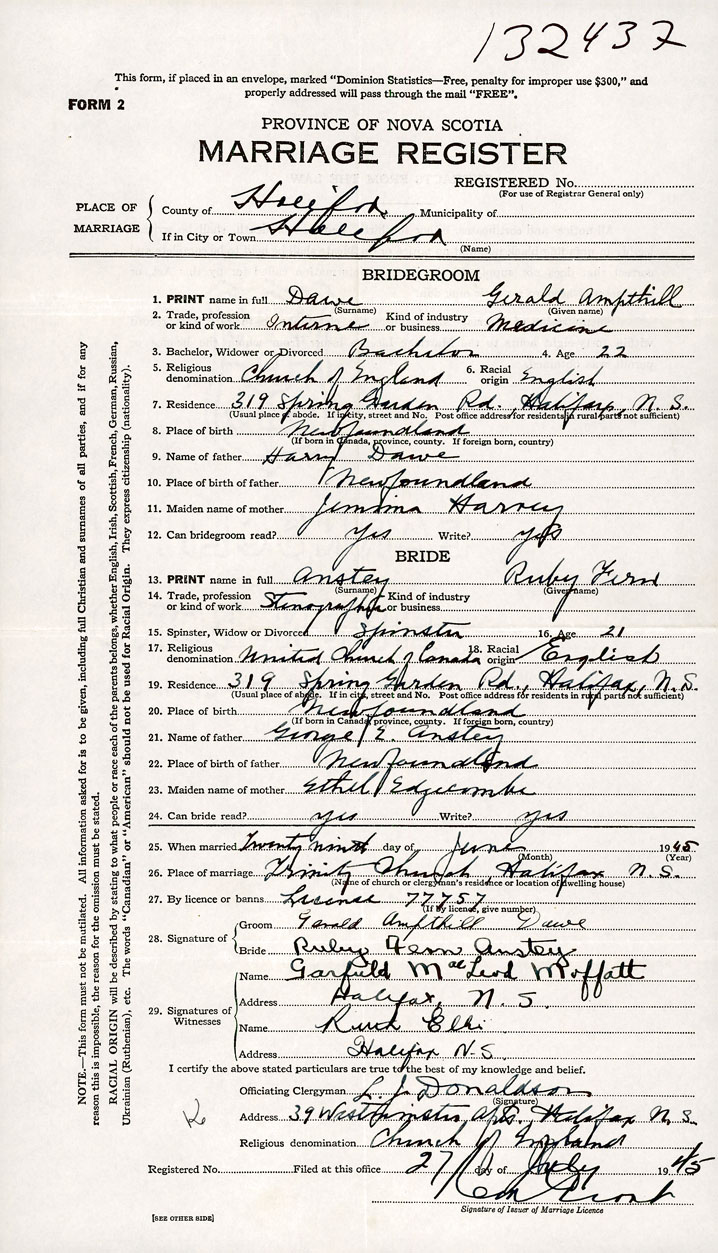 132437
This form, if placed in an envelope, marked "Dominion Statistics—Free, penalty for improper use $300," and
properly addressed will pass through the mail "FREE".
FORM 2
PROVINCE OF NOVA SCOTIA
MARRIAGE REGISTER
REGISTERED No.
(For use of Registrar General only)
PLACE OF MARRIAGE
County of Halifax Municipality of
If in City or Town Halifax
(Name)
BRIDEGROOM
1. PRINT name in full Dawe Gerald Ampthill
(Surname) (Given name)
2. Trade, profession or kind of work Interne Kind of industry or business Medicine
3. Bachelor, Widower or Divorced Bachelor 4. Age 22
5. Religious denomination Church of England 6. Racial origin English
7. Residence 319 Spring Garden Rd., Halifax, N.S.
(Usual place of abode. If in city, street and No. Post office address for residents in rural parts not sufficient)
8. Place of birth Newfoundland
(If born in Canada, province, county. If foreign born, country)
9. Name of father Harry Dawe
10. Place of birth of father Newfoundland
11. Maiden name of mother Jemima Harvey
12. Can bridegroom read? Yes Write? yes
BRIDE
13. PRINT name in full Anstey Ruby Fern
(Surname) (Given name)
14. Trade, profession or kind of work Stenographer Kind of industry or business
15. Spinster, Widow or Divorced Spinster 16. Age 21
17. Religious denomination United Church of Canada 18. Racial origin English
19. Residence 319 Spring Garden Rd., Halifax, N.S.
(Usual place of abode. If in city, street and No. Post office address for residents in rural parts not sufficient)
20. Place of birth Newfoundland
(If born in Canada, province, county. If foreign born, country)
21. Name of father George E. Anstey
22. Place of birth of father Newfoundland
23. Maiden name of mother Ethel Edgecombe
24. Can bride read? yes Write? yes
25. When married Twenty ninth day of June 1945
(Month) (Year)
26. Place of marriage Trinity Church Halifax N.S.
(Name of church or clergyman's residence or location of dwelling house)
27. By licence or banns License 77757
(If by licence, give number)
28. Signature of
Groom Gerald Ampthill Dawe
Bride Ruby Fern Anstey
29. Signatures of Witnesses
Name Garfield MacLeod Moffatt
Address Halifax, N.S.
Name Ruth
Address Halifax N.S.
I certify the above stated particulars are true to the best of my knowledge and belief.
Officiating Clergyman L. J. Donaldson
(Signature)
Address 39 Westminster Apts, Halifax N.S.
Religious denomination Church of England
Registered No. Filed at this office 27 day of July 1945
Signature of Issuer of Marriage Licence
[SEE OTHER SIDE]
NOTE.—This form must not be mutilated. All information asked for is to be given, including full Christian and surnames of all parties, and if for any
reason this is impossible, the reason for the omission must be stated.
RACIAL ORIGIN will be described by stating to what people or race each of the parents belongs, whether English, Irish, Scottish, French, German, Russian,
Ukrainian (Ruthenian), etc. The words "Canadian" or "American" should not be used for Racial Origin. They express citizenship (nationality).